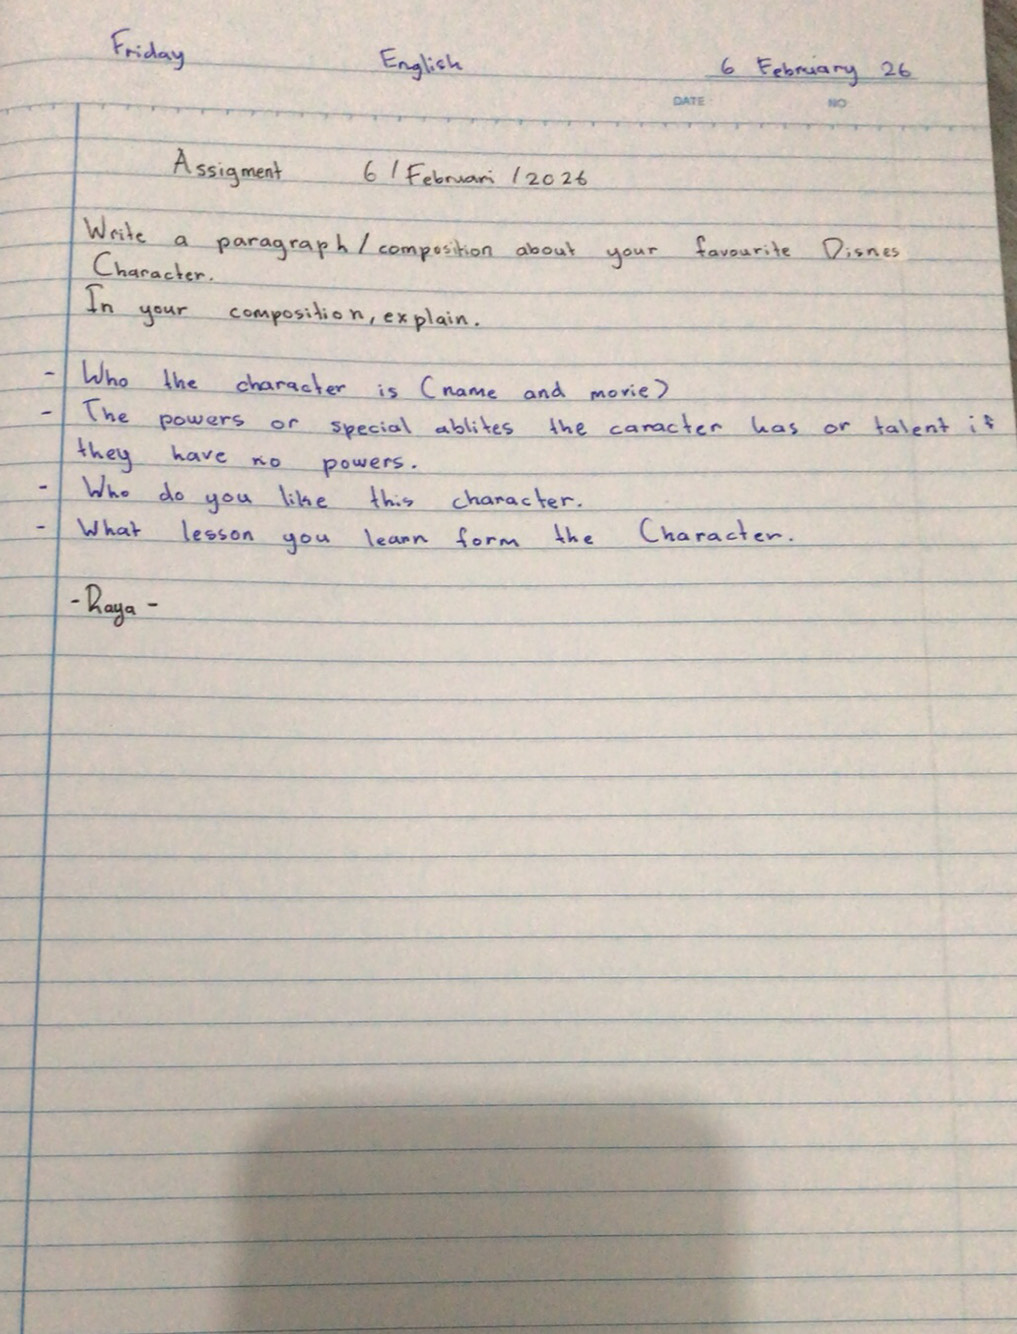 Friday English 6 February 26
DATE NO
Assigment 6 / Februari / 2026
Write a paragraph / composition about your favourite Disnes
Character.
In your composition, explain.
- Who the character is (name and movie)
- The powers or special ablites the caracter has or talent if
they have no powers.
- Who do you like this character.
- What lesson you learn form the Character.
- Raya -